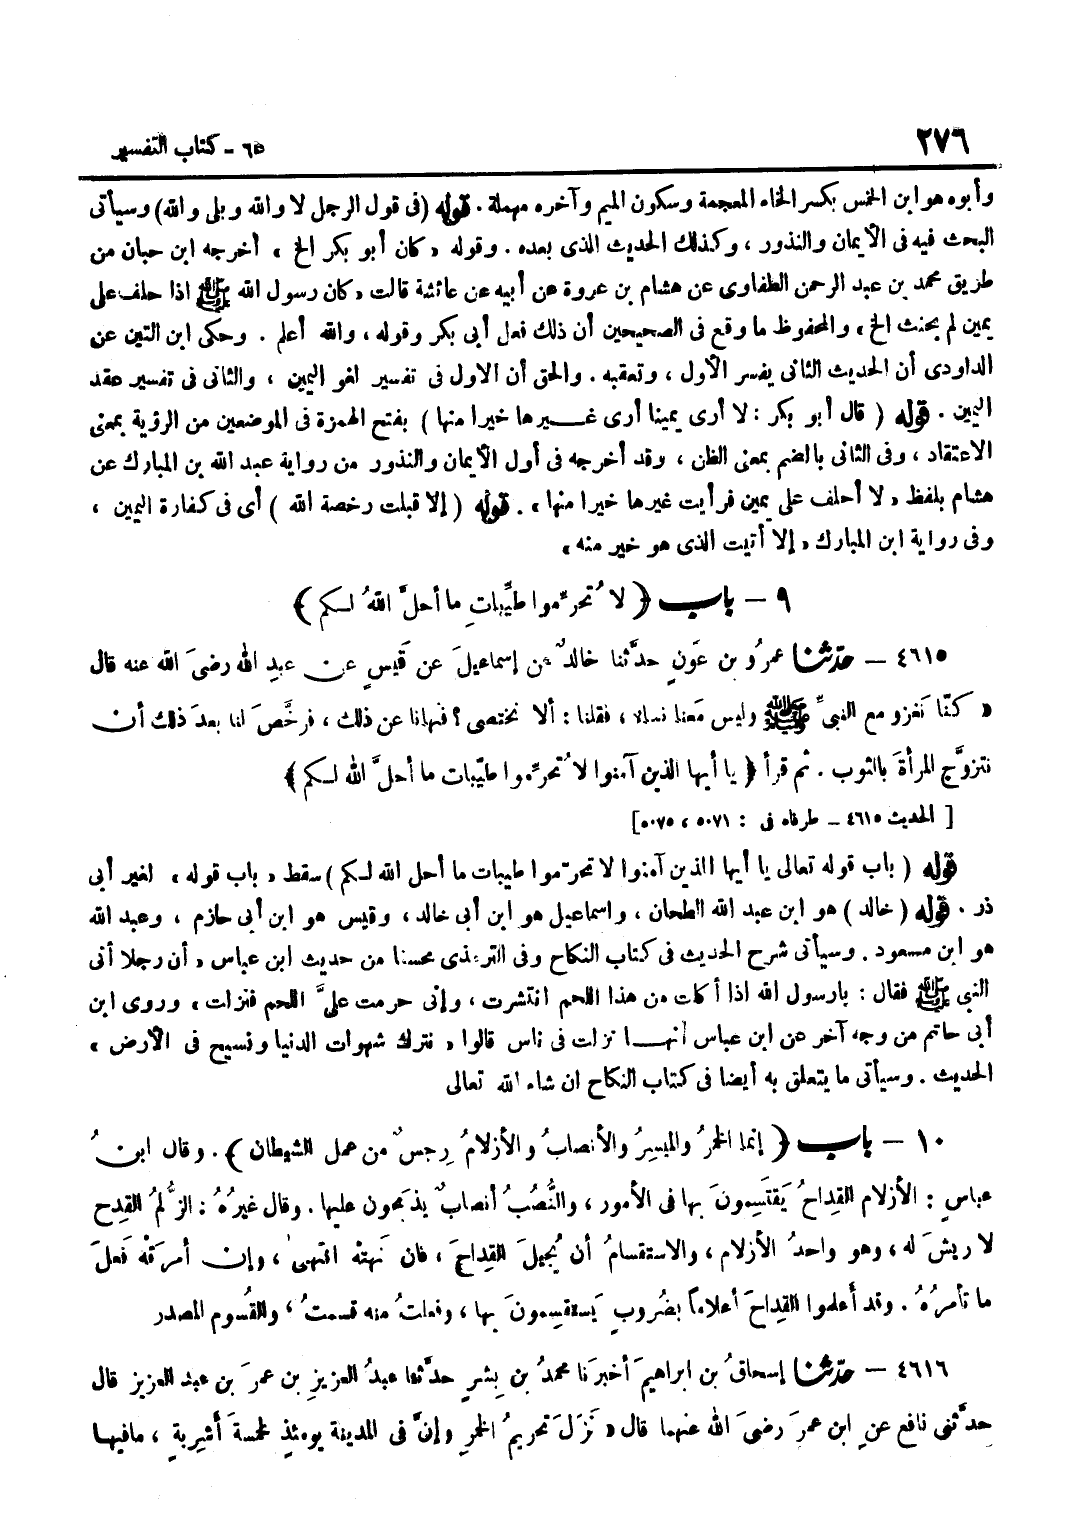 ٢٧٦
٦٥ - كتاب التفسير
وأبوه هو ابن الخمس بكسر الخاء المعجمة وسكون الميم وآخره مهملة . قوله (فى قول الرجل لا والله وبلى والله) وسيأتى
البحث فيه فى الأيمان والنذور ، وكذلك الحديث الذى بعده . وقوله « كان أبو بكر الخ » أخرجه ابن حبان من
طريق محمد بن عبد الرحمن الطفاوى عن هشام بن عروة عن أبيه عن عائشة قالت « كان رسول الله ﷺ اذا حلف على
يمين لم يحنث الخ » والمحفوظ ما وقع فى الصحيحين أن ذلك فعل أبى بكر وقوله ، والله أعلم . وحكى ابن التين عن
الداودى أن الحديث الثانى يفسر الأول ، وتعقبه . والحق أن الاول فى تفسير لغو اليمين ، والثانى فى تفسير عقد
اليمين . قوله ( قال أبو بكر : لا أرى يمينا أرى غيرها خيرا منها ) بفتح الهمزة فى الموضعين من الرؤية بمعنى
الاعتقاد ، وفى الثانى بالضم بمعنى الظن ، وقد أخرجه فى أول الأيمان والنذور من رواية عبد الله بن المبارك عن
هشام بلفظ « لا أحلف على يمين فرأيت غيرها خيرا منها » . قوله ( إلا قبلت رخصة الله ) أى فى كفارة اليمين ،
وفى رواية ابن المبارك « إلا أتيت الذى هو خير منه »
٩ - باب ﴿ لا تُحرِّموا طيِّباتِ ما أحلَّ اللهُ لكم ﴾
٤٦١٥ - حدّثنا عمرُو بن عَونٍ حدَّثنا خالدٌ عن إسماعيلَ عن قَيسٍ عن عبدِ الله رضىَ الله عنه قال
« كنّا نَغزو مع النبىِّ ﷺ وليس مَعنا نساء ، فقلنا : ألا نختصى ؟ فنهانا عن ذلك ، فرخَّصَ لنا بعدَ ذلك أن
نتزوَّج المرأةَ بالثوب . ثم قرأ ﴿ يا أيها الذين آمنوا لا تُحرِّموا طيّبات ما أحلَّ الله لكم ﴾
[ الحديث ٤٦١٥ - طرفاه فى : ٥٠٧١ ، ٥٠٧٥]
قوله ( باب قوله تعالى يا أيها الذين آمنوا لا تحرّموا طيبات ما أحل الله لكم ) سقط « باب قوله » لغير أبى
ذر . قوله ( خالد ) هو ابن عبد الله الطحان ، واسماعيل هو ابن أبى خالد ، وقيس هو ابن أبى حازم ، وعبد الله
هو ابن مسعود . وسيأتى شرح الحديث فى كتاب النكاح وفى الترمذى محسنا من حديث ابن عباس « أن رجلا أتى
النبى ﷺ فقال : يارسول الله اذا أكلت من هذا اللحم انتشرت ، وإنى حرمت علىَّ اللحم فنزلت » وروى ابن
أبى حاتم من وجه آخر عن ابن عباس أنهــا نزلت فى ناس قالوا « نترك شهوات الدنيا ونسيح فى الأرض »
الحديث . وسيأتى ما يتعلق به أيضا فى كتاب النكاح ان شاء الله تعالى
١٠ - باب ﴿ إنما الخمرُ والميسِرُ والأنصابُ والأزلامُ رِجسٌ من عمل الشيطان ﴾ . وقال ابنُ
عباسٍ : الأزلام القِداحُ يَقتَسِمونَ بها فى الأمور ، والنُّصُبُ أنصابٌ يذبحون عليها . وقال غيرُهُ : الزُّلَمُ القِدح
لا ريشَ له ، وهو واحدُ الأزلام ، والاستقسامُ أن يُجيلَ القِداحَ ، فان نَهتْه انتهىٰ ، وإن أمرَتْه فَعلَ
ما تأمرُهُ . وقد أَعلموا القِداحَ أعلاماً بضُروبٍ يَستقسِمونَ بها ، وفعلتُ منه قسمتُ ، والقُسوم المصدر
٤٦١٦ - حدّثنا إسحاقُ بن ابراهيمَ أخبرَنا محمدُ بن بِشرٍ حدَّثنا عبدُ العزيزِ بن عمرَ بن عبد العزيز قال
حدَّثنى نافع عنِ ابن عمرَ رضىَ الله عنهما قال « نَزَلَ تحريمُ الخمرِ وإنَّ فى المدينة يومئذٍ لخمسةَ أشربةٍ ، مافيها